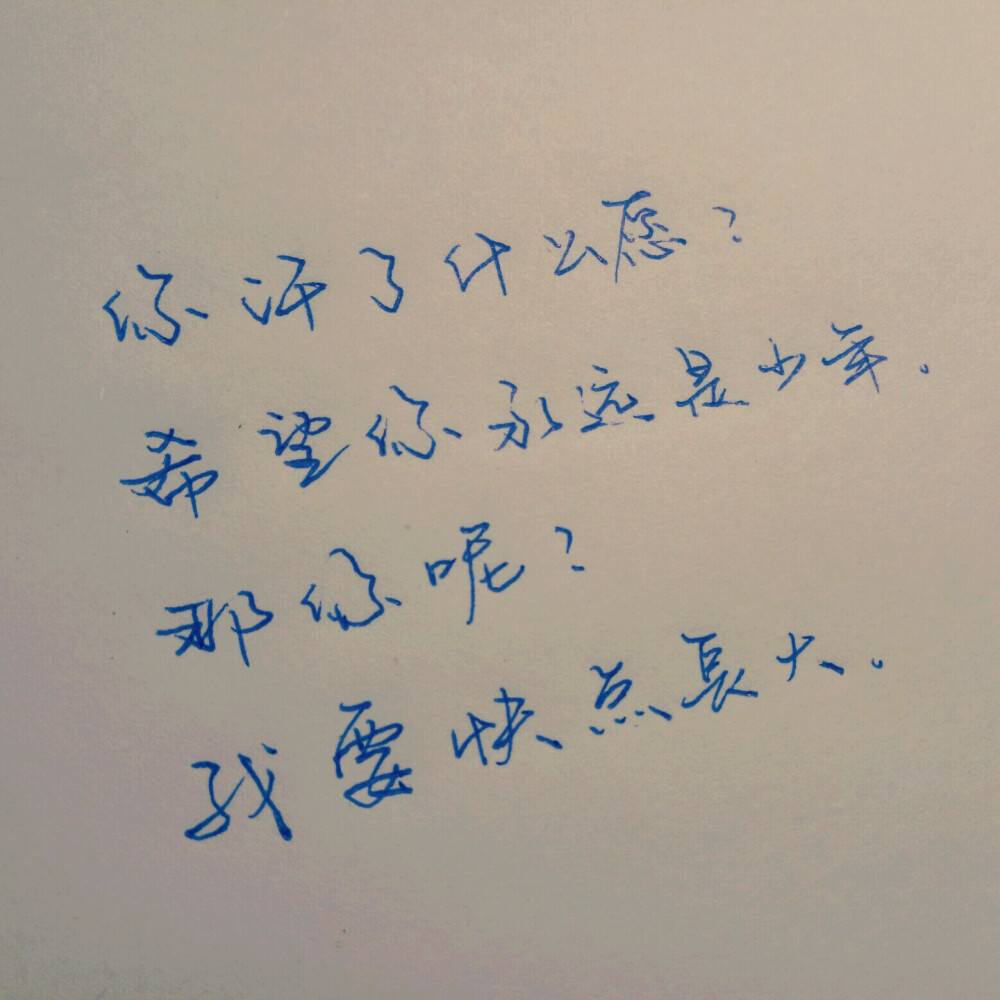 你许了什么愿?
希望你永远是少年。
那你呢?
我要快点长大。